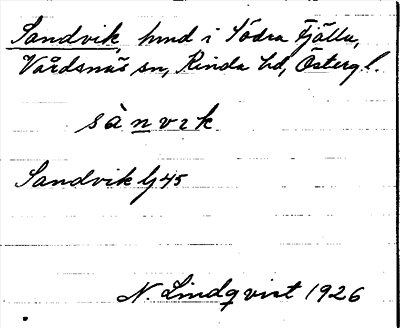 Sandvik, hmd i Södra Fjälla,
Vårdsnäs sn, Kinda hd, Östergl.
sànvɩk
Sandvik Gj 45
N. Lindqvist 1926